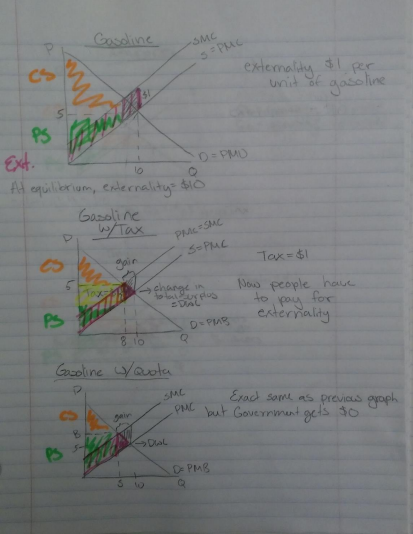 Gasoline
P
SMC
S=PMC
CS
externality $1 per
unit of gasoline
$1
5
PS
D=PMU
Ext.
10
Q
At equilibrium, externality = $10
Gasoline
w/Tax
P
PMC=SMC
S=PMC
gain
CS
Tax=$1
5
Tax
→change in
total surplus
=DWL
Now people have
to pay for
externality
PS
D=PMB
8 10
Q
Gasoline w/Quota
P
SMC
PMC
Exact same as previous graph
but Government gets $0
CS
gain
5
→DWL
PS
D=PMB
10
Q